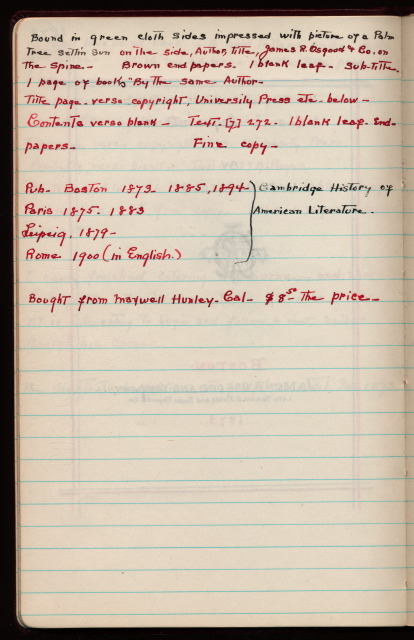 Bound in green cloth sides impressed with picture of a Palm
Tree settin sun on the side, Author, Title, James R. Osgood & Co. on
the spine- Brown end papers. 1 blank leaf. Sub-title.
1 page of books "By the same Author-
Title page. verso copyright, University Press etc. below-
Contents verso blank- Text. [7] 272. 1 blank leaf. End-
papers- Fine copy-
Pub- Boston 1873 1885, 1894 } Cambridge History of
Paris 1875. 1883 American Literature.
Leipzig, 1879-
Rome 1900 (in English.)
Bought from Maxwell Hunley- Cal- $8.50 The price-